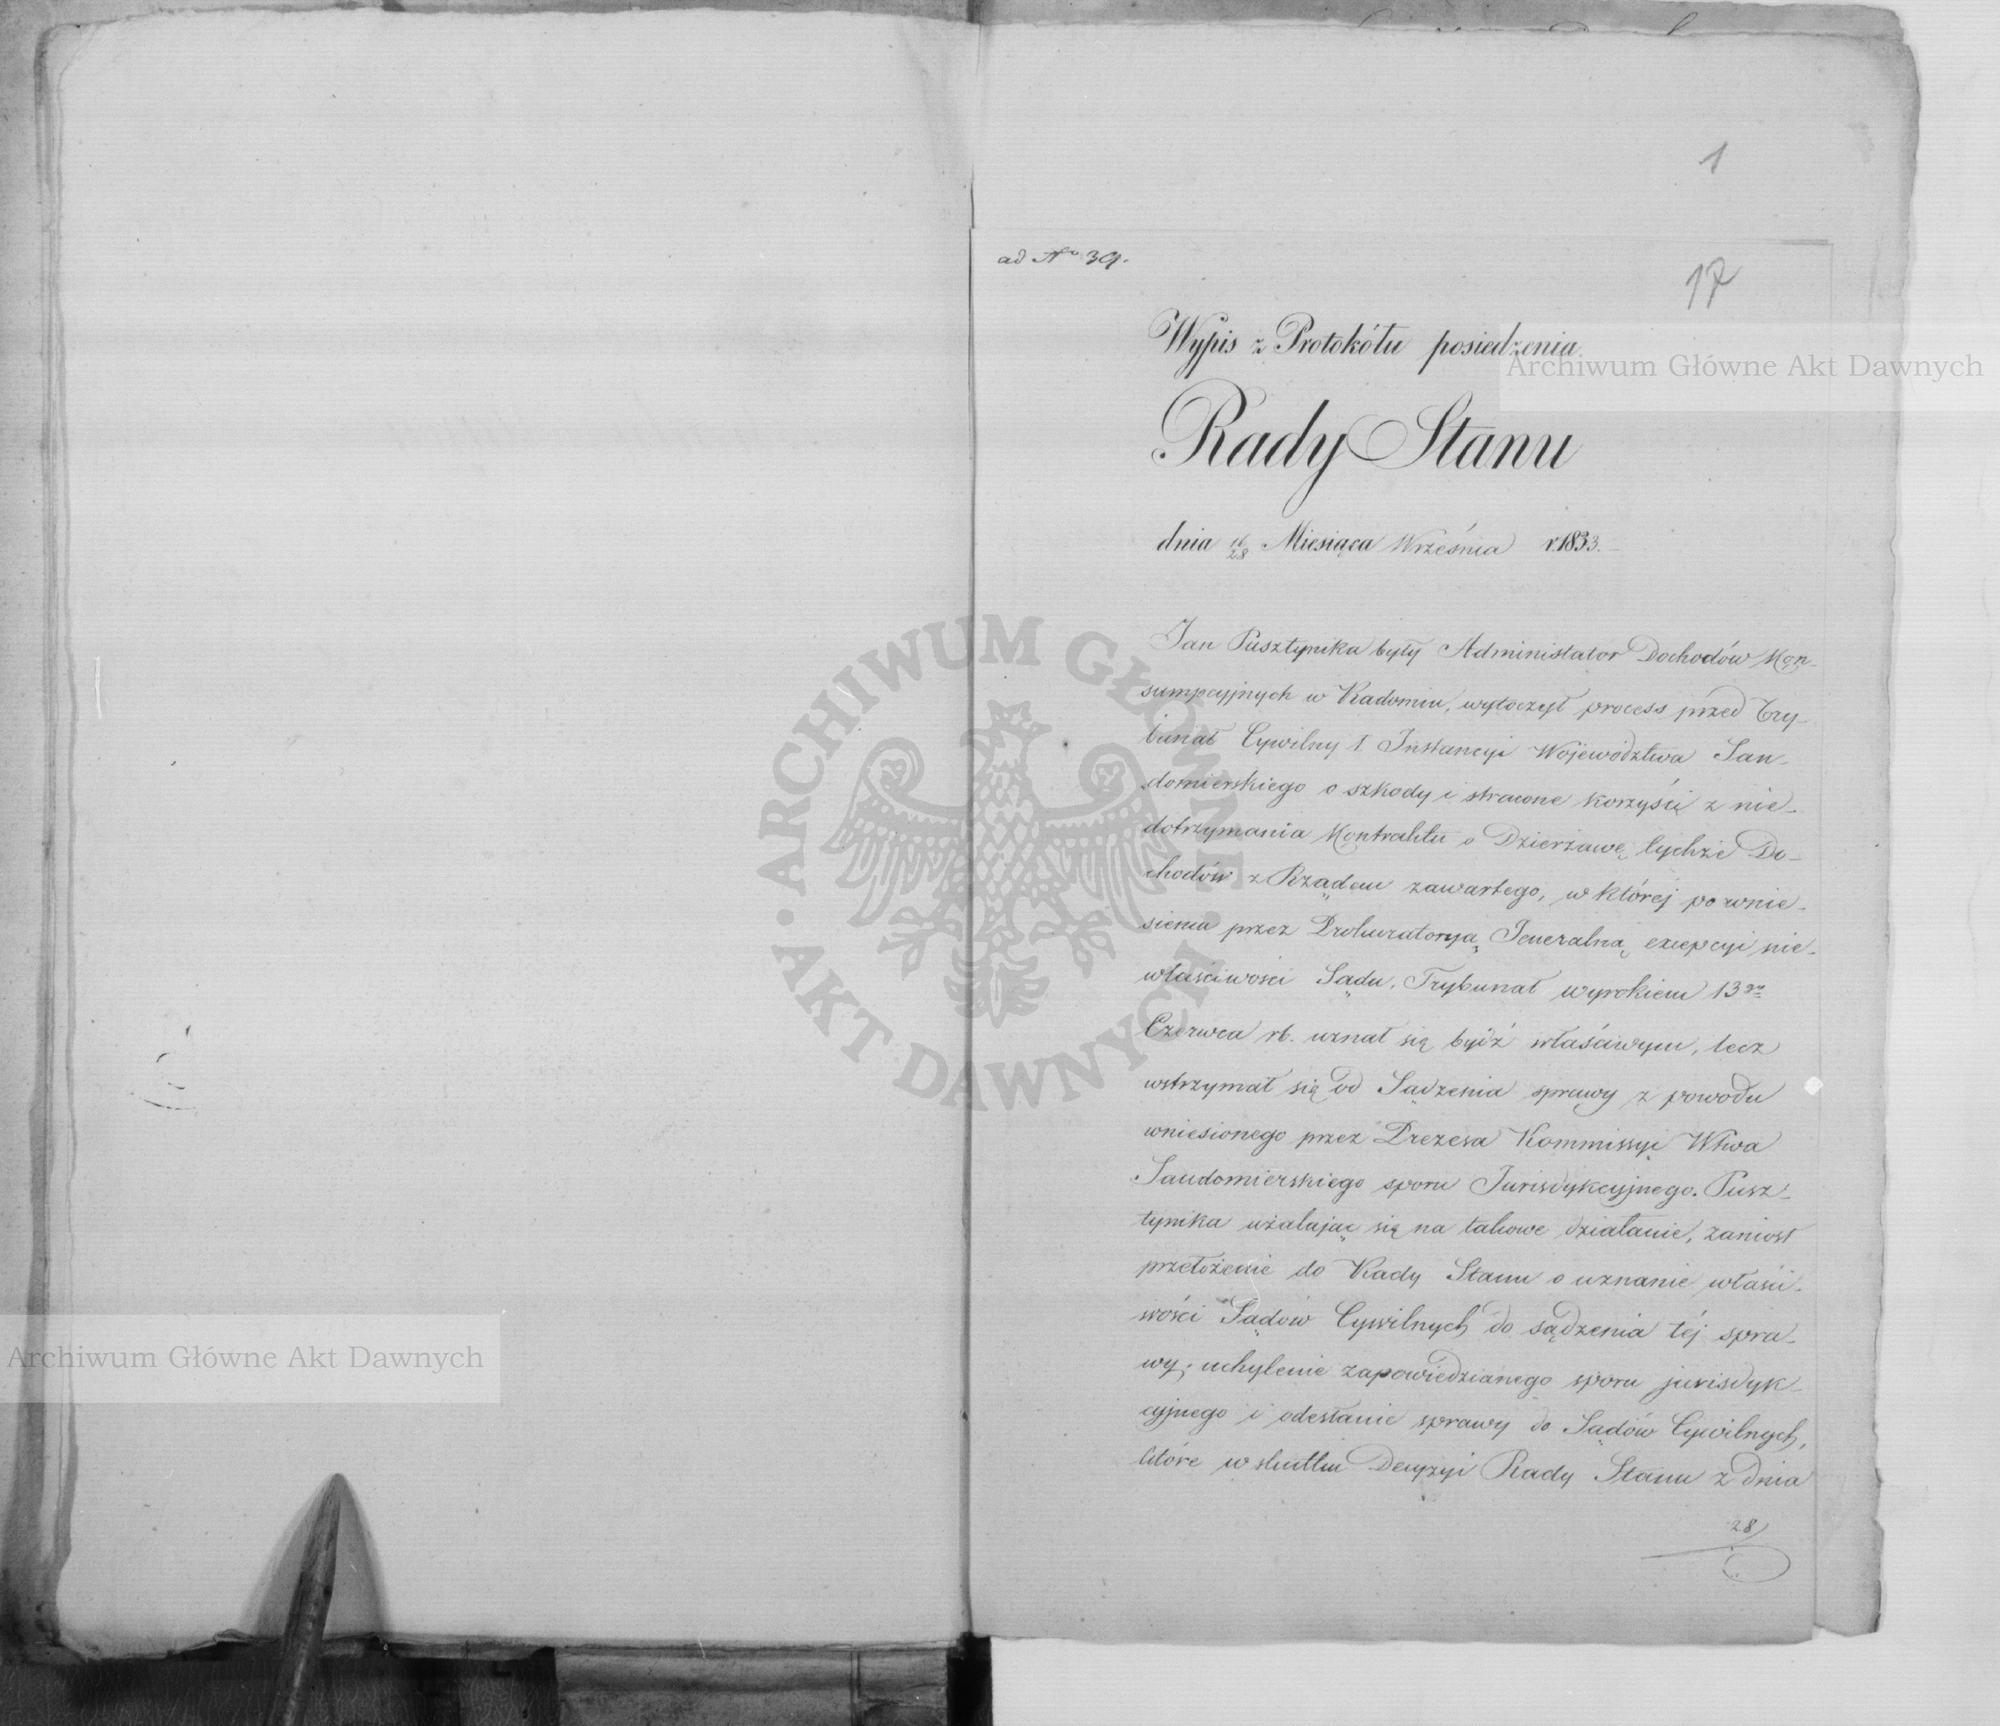 1
ad Nro 39.
17
Wypis z Protokółu posiedzenia
Rady Stanu
dnia 16/28 Miesiąca Września r. 1833.
Jan Pusztynika były Administator Dochodów Kon-
sumpcyjnych w Radomiu, wytoczył process przed Try-
bunał Cywilny I. Instancyi Województwa San-
domierskiego o szkody i stracone korzyści z nie-
dotrzymania Kontraktu o Dzierżawę tychże Do-
chodów z Rządem zawartego, w której po wnie-
sieniu przez Prokuratoryą Jeneralną excepcyi nie-
właściwości Sądu, Trybunał wyrokiem 13go
Czerwca rb. uznał się bydź właściwym, lecz
wstrzymał się od Sądzenia sprawy z powodu
wniesionego przez Prezesa Kommissyi Wtwa
Sandomierskiego sporu Jurisdykcyjnego. Pusz-
tynika użalając się na takowe działanie, zaniosł
przełożenie do Rady Stanu o uznanie właści-
wości Sądów Cywilnych do sądzenia téj spra-
wy; uchylenie zapowiedzianego sporu jurisdyk-
cyjnego i odesłanie sprawy do Sądów Cywilnych,
które w skutku Decyzyi Rady Stanu z dnia
28
Archiwum Główne Akt Dawnych
Archiwum Główne Akt Dawnych
ARCHIWUM GŁÓWNE · AKT DAWNYCH ·